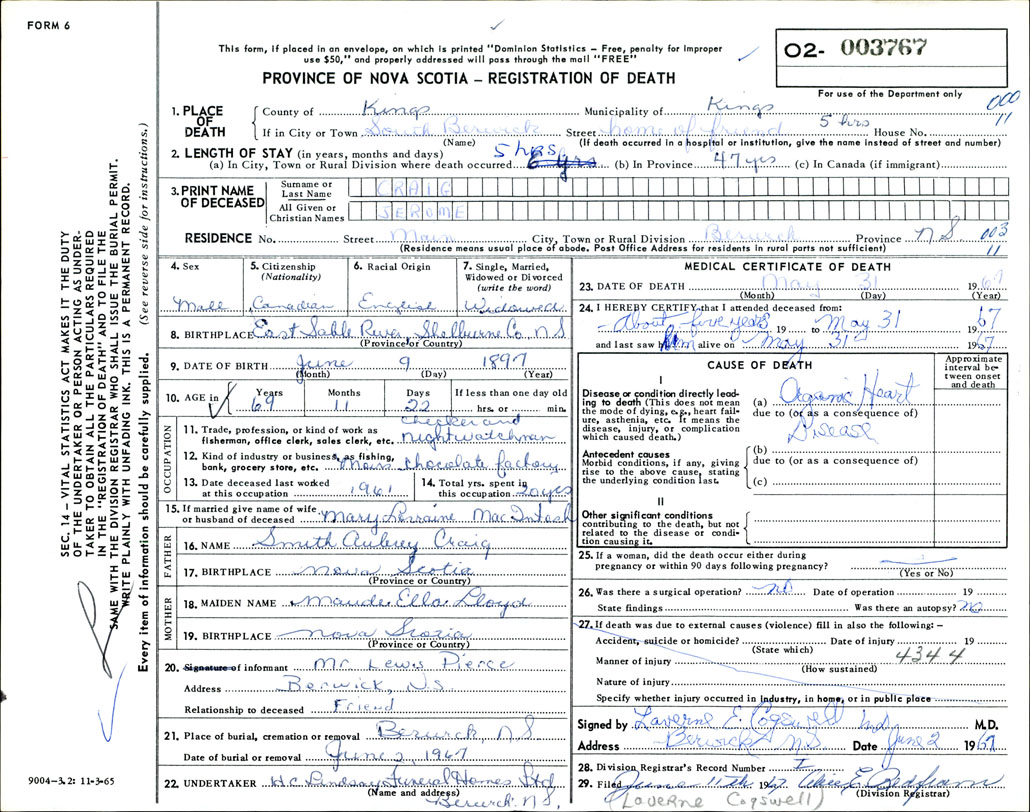 FORM 6
This form, if placed in an envelope, on which is printed "Dominion Statistics – Free, penalty for improper
use $50," and properly addressed will pass through the mail "FREE"
PROVINCE OF NOVA SCOTIA – REGISTRATION OF DEATH
02- 003767
For use of the Department only
000
11
1. PLACE OF DEATH
County of Kings Municipality of Kings
If in City or Town South Berwick Street home of friend 5 hrs House No.
(Name) (If death occurred in a hospital or institution, give the name instead of street and number)
2. LENGTH OF STAY (in years, months and days) 5 hrs
(a) In City, Town or Rural Division where death occurred 6 yrs (b) In Province 47 yrs (c) In Canada (if immigrant)
3. PRINT NAME OF DECEASED
Surname or Last Name CRAIG
All Given or Christian Names JEROME
RESIDENCE No. Street Main City, Town or Rural Division Berwick Province N.S. 003
11
(Residence means usual place of abode. Post Office Address for residents in rural parts not sufficient)
4. Sex
Male
5. Citizenship
(Nationality)
Canadian
6. Racial Origin
English
7. Single, Married,
Widowed or Divorced
(write the word)
Widowed
8. BIRTHPLACE East Sable River, Shelburne Co N S
(Province or Country)
9. DATE OF BIRTH June 9 1897
(Month) (Day) (Year)
10. AGE in Years Months Days If less than one day old
69 11 22 hrs. or min.
OCCUPATION
11. Trade, profession, or kind of work as
fisherman, office clerk, sales clerk, etc. Checker and
Nightwatchman
12. Kind of industry or business, as fishing,
bank, grocery store, etc. Moirs Chocolate factory
13. Date deceased last worked
at this occupation 1961
14. Total yrs. spent in
this occupation 20 yrs
15. If married give name of wife
or husband of deceased Mary Lorraine MacIntosh
FATHER
16. NAME Smith Aubrey Craig
17. BIRTHPLACE Nova Scotia
(Province or Country)
MOTHER
18. MAIDEN NAME Maude Ella Lloyd
19. BIRTHPLACE Nova Scotia
(Province or Country)
20. Signature of informant Mr Lewis Pierce
Address Berwick, N.S.
Relationship to deceased Friend
21. Place of burial, cremation or removal Berwick N S
Date of burial or removal June 2, 1967
22. UNDERTAKER H.C. Lindsay Funeral Homes Ltd
(Name and address) Berwick N.S.
MEDICAL CERTIFICATE OF DEATH
23. DATE OF DEATH May 31 1967
(Month) (Day) (Year)
24. I HEREBY CERTIFY that I attended deceased from:
About five years 19 to May 31 1967
and last saw him alive on May 31 1967
CAUSE OF DEATH
Approximate
interval be-
tween onset
and death
I
Disease or condition directly lead-
ing to death (This does not mean
the mode of dying, e.g., heart fail-
ure, asthenia, etc. It means the
disease, injury, or complication
which caused death.)
(a) Organic Heart
due to (or as a consequence of)
Disease
Antecedent causes
Morbid conditions, if any, giving
rise to the above cause, stating
the underlying condition last.
(b)
due to (or as a consequence of)
(c)
II
Other significant conditions
contributing to the death, but not
related to the disease or condi-
tion causing it.
25. If a woman, did the death occur either during
pregnancy or within 90 days following pregnancy?
(Yes or No)
26. Was there a surgical operation? No Date of operation 19
State findings Was there an autopsy? No
27. If death was due to external causes (violence) fill in also the following: –
Accident, suicide or homicide? Date of injury 19
(State which) 4344
Manner of injury
(How sustained)
Nature of injury
Specify whether injury occurred in industry, in home, or in public place
Signed by Laverne E. Cogswell Md M.D.
Address Berwick N.S Date June 2 1967
28. Division Registrar's Record Number
29. Filed June 11th 1967
(Division Registrar)
(Laverne Cogswell)
SEC. 14 – VITAL STATISTICS ACT MAKES IT THE DUTY
OF THE UNDERTAKER OR PERSON ACTING AS UNDER-
TAKER TO OBTAIN ALL THE PARTICULARS REQUIRED
IN THE "REGISTRATION OF DEATH" AND TO FILE THE
SAME WITH THE DIVISION REGISTRAR WHO SHALL ISSUE THE BURIAL PERMIT.
WRITE PLAINLY WITH UNFADING INK. THIS IS A PERMANENT RECORD.
Every item of information should be carefully supplied. (See reverse side for instructions.)
9004-3.2: 11-3-65